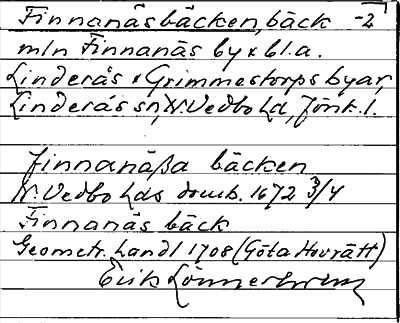 Finnanäsbäcken, bäck -2
mln Finnanäs by x bl.a.
Linderås x Grimmestorps byar,
Linderås sn, N. Vedbo hd, Jönk. l.
finnanäßa bäcken
N. Vedbo hds domb. 1672 3/4
Finnanäs bäck
Geometr. Landl 1708 (Göta Hovrätt)
Erik